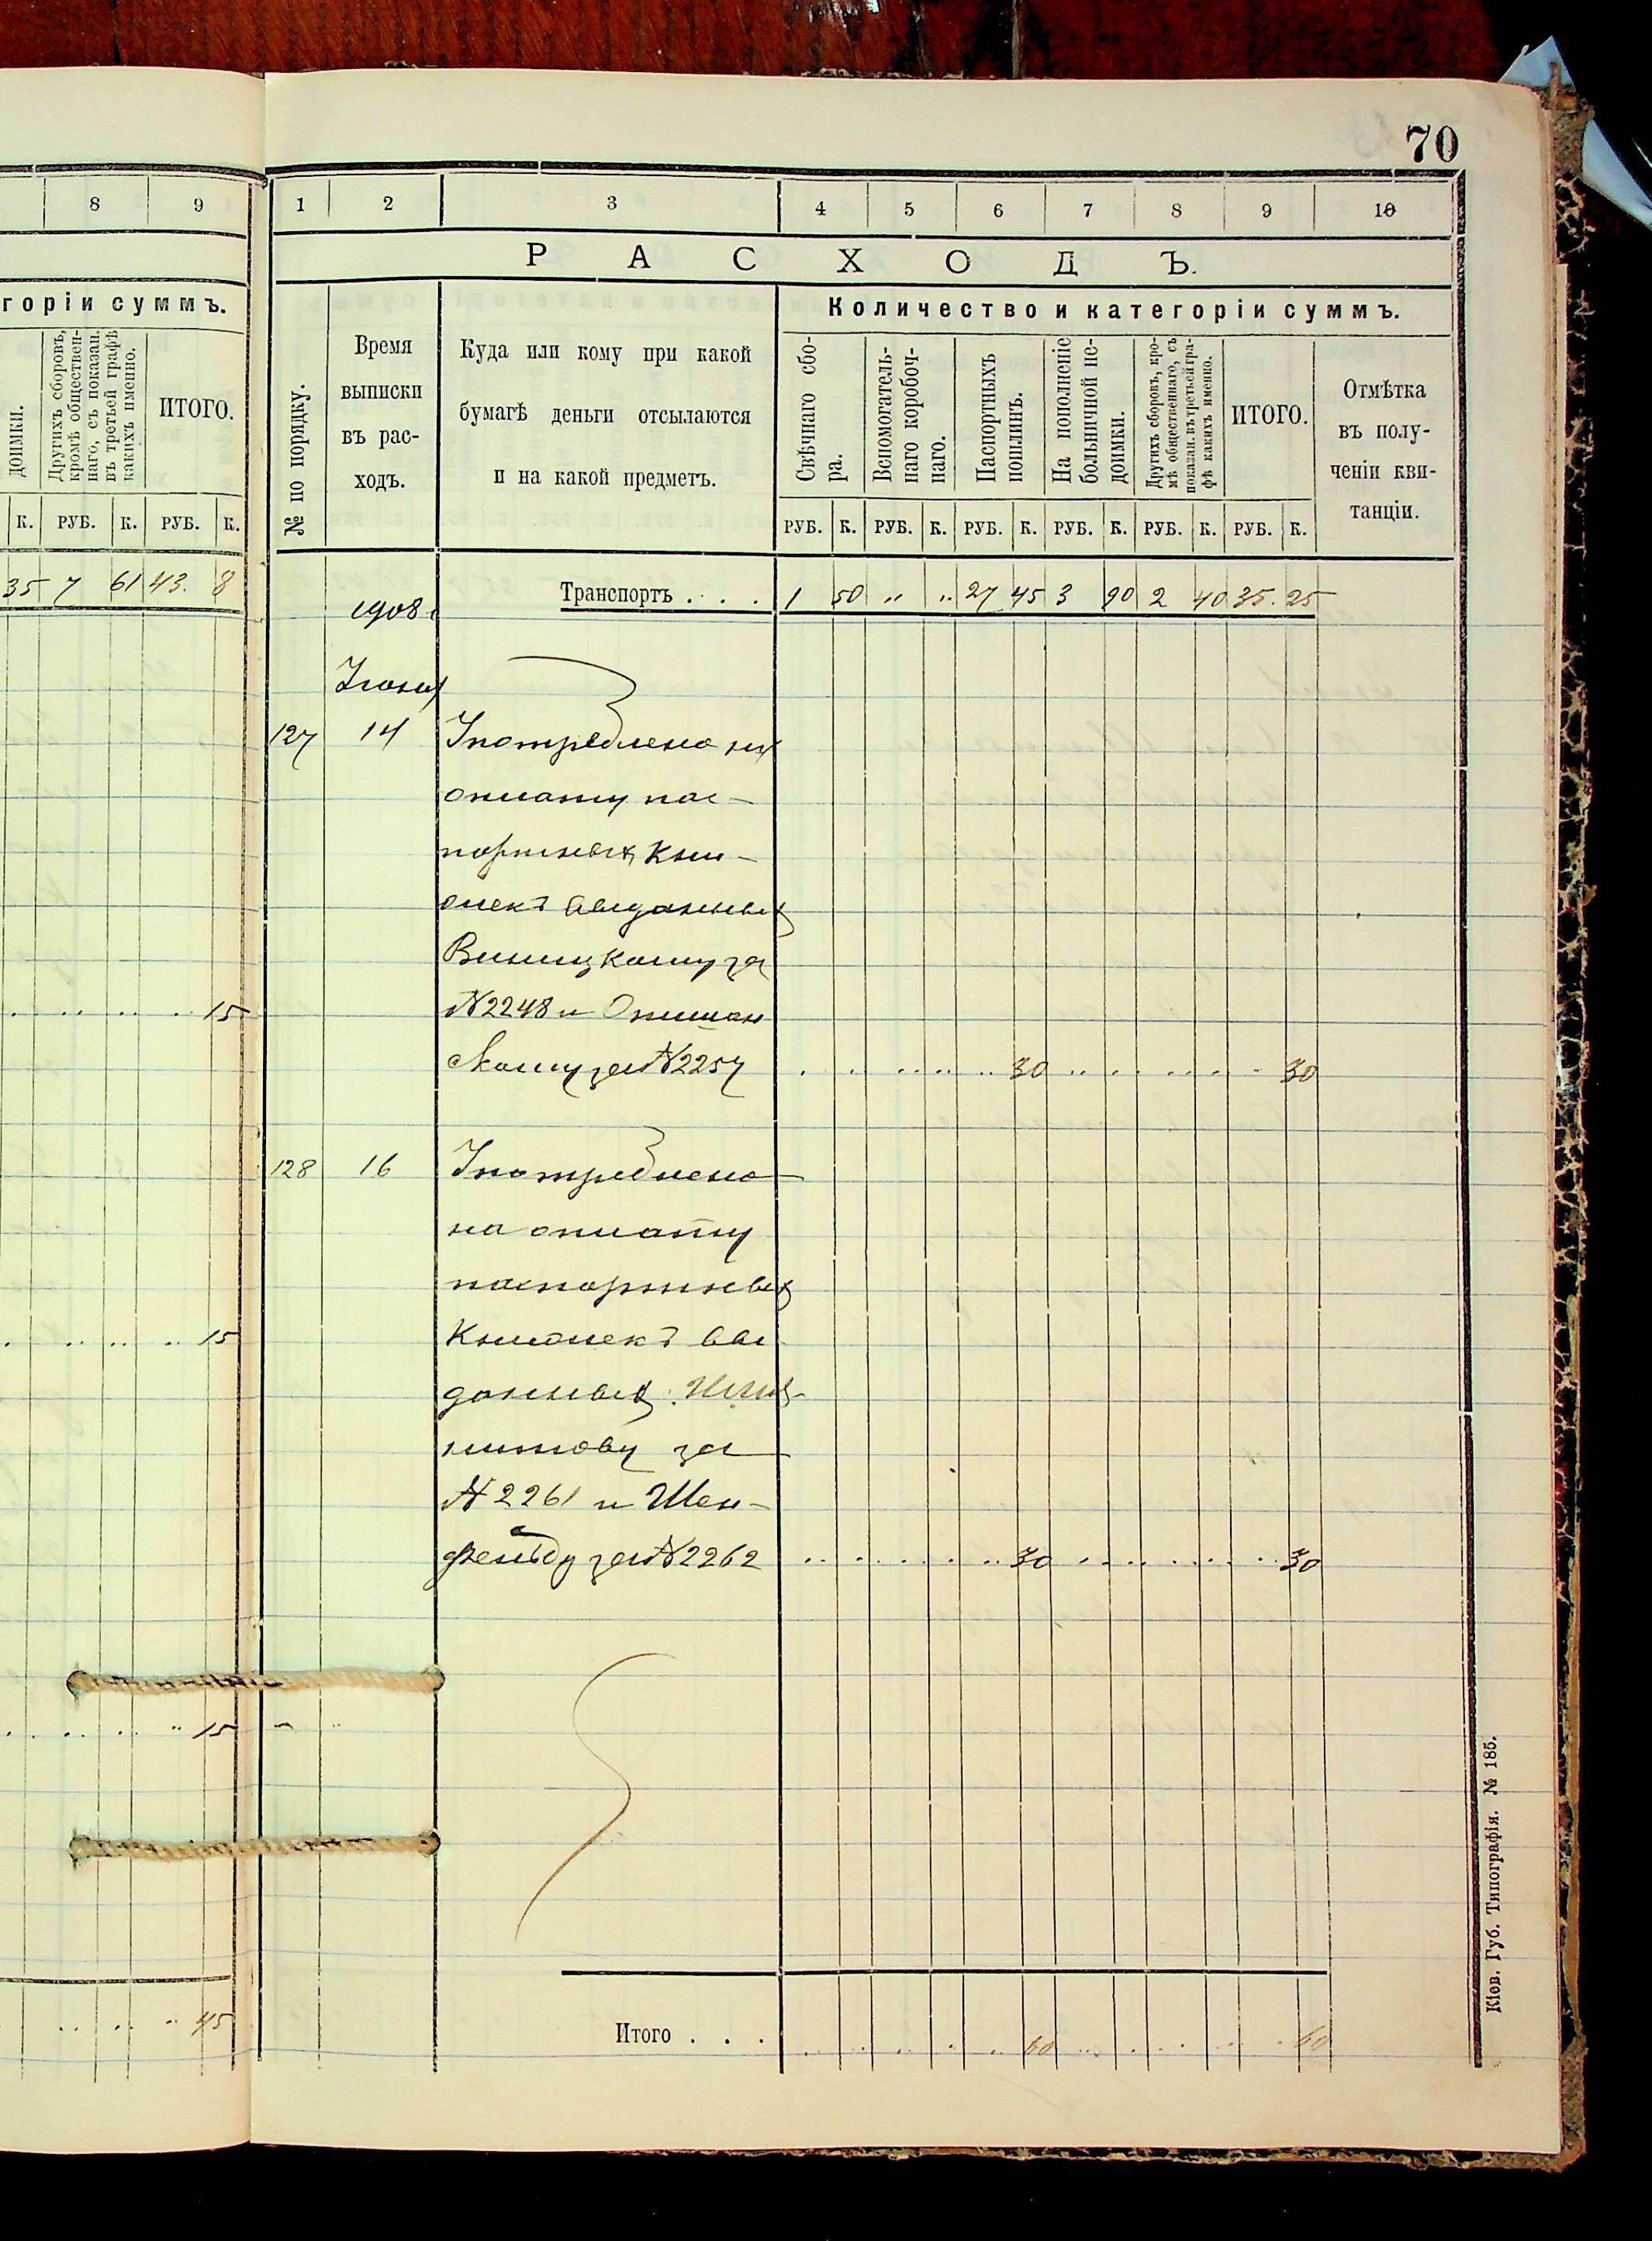 70
8 9
горіи суммъ.
доимки.
Другихъ сборовъ,
кромѣ обществен-
наго, съ показан.
въ третьей графѣ
какихъ именно.
ИТОГО.
К. РУБ. К. РУБ. К.
35 7 61 43. 8
15
15
15
45
1 2 3 4 5 6 7 8 9 10
РАСХОДЪ.
№ по порядку.
Время
выписки
въ рас-
ходъ.
Куда или кому при какой
бумагѣ деньги отсылаются
и на какой предметъ.
Количество и категоріи суммъ.
Свѣчнаго сбо-
ра.
Вспомогатель-
наго коробоч-
наго.
Паспортныхъ
пошлинъ.
На пополненіе
больничной не-
доимки.
Другихъ сборовъ, кро-
мѣ общественнаго, съ
показан. въ третьей гра-
фѣ какихъ именно.
ИТОГО.
Отмѣтка
въ полу-
ченіи кви-
танціи.
РУБ. К. РУБ. К. РУБ. К. РУБ. К. РУБ. К. РУБ. К.
Транспортъ . . . 1 50 „ „ 27 45 3 90 2 40 35. 25
1908 г
Іюня
127 14 Употреблено на
оплату пас-
портныхъ кни-
жекъ выданныхъ
Виницкому за
№ 2248 и Опишан
скому за № 2257 30 30
128 16 Употреблено
на оплату
паспортныхъ
книжекъ вы
данныхъ
за
№ 2261 и Шен-
фельду за № 2262 30 30
Итого . . . 60 60
Кіев. Губ. Типографія. № 185.